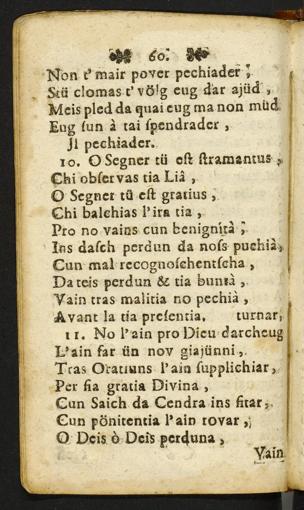 60.
Non t' mair pover pechiader ;
Stü clomas t' völg eug dar ajüd ,
Meis pled da quai eug ma non müd
Eug ſun à tai ſpendrader ,
Jl pechiader.
10. O Segner tü eſt ſtramantus ,
Chi obſervas tia Liâ ,
O Segner tü eſt gratius ,
Chi balchias l'ira tia ,
Pro no vains cun benignità ;
Ins daſch perdun da noſs puchià,
Cun mal recognoſchentſcha ,
Da teis perdun & tia buntà ,
Vain tras malitia no pechià ,
Avant la tia preſentia. turnar,
11. No l'ain pro Dieu darcheug
L'ain far ün nov giajünni ,
Tras Oratiuns l'ain ſupplichiar ,
Per ſia gratia Divina ,
Cun Saich da Cendra ins ſitar,
Cun pönitentia l'ain rovar ,
O Deis ò Deis perduna ,
Vain